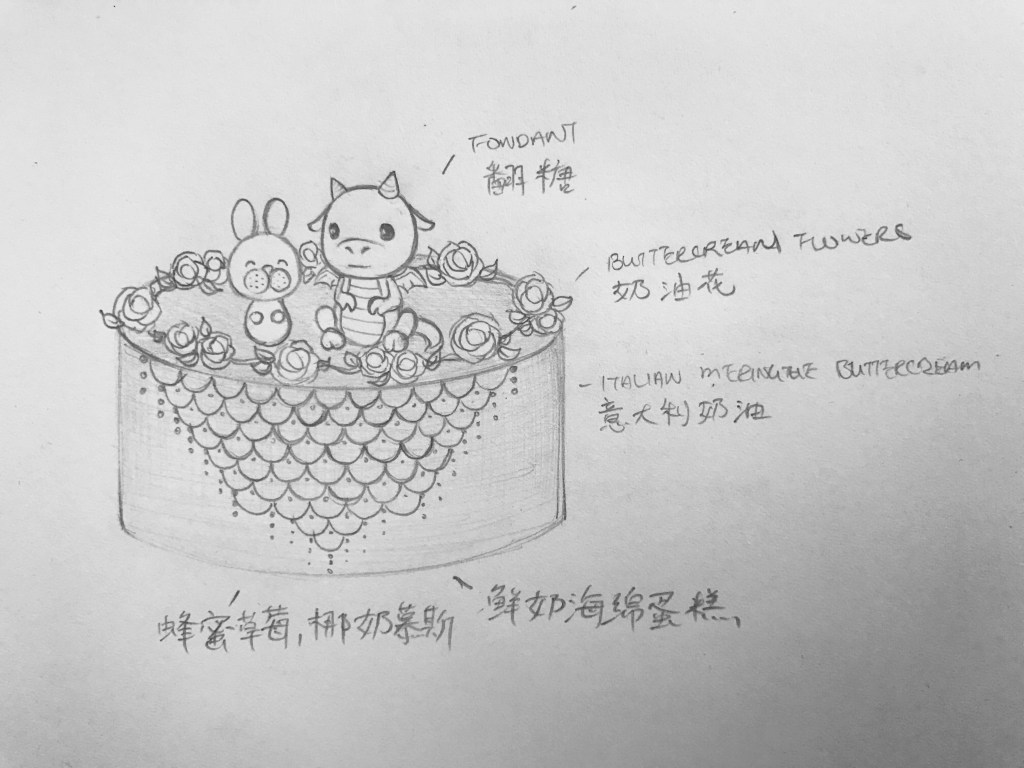 FONDANT
翻糖
BUTTERCREAM FLOWERS
奶油花
- ITALIAN MERINGUE BUTTERCREAM
意大利奶油
蜂蜜草莓,椰奶慕斯
鲜奶海绵蛋糕